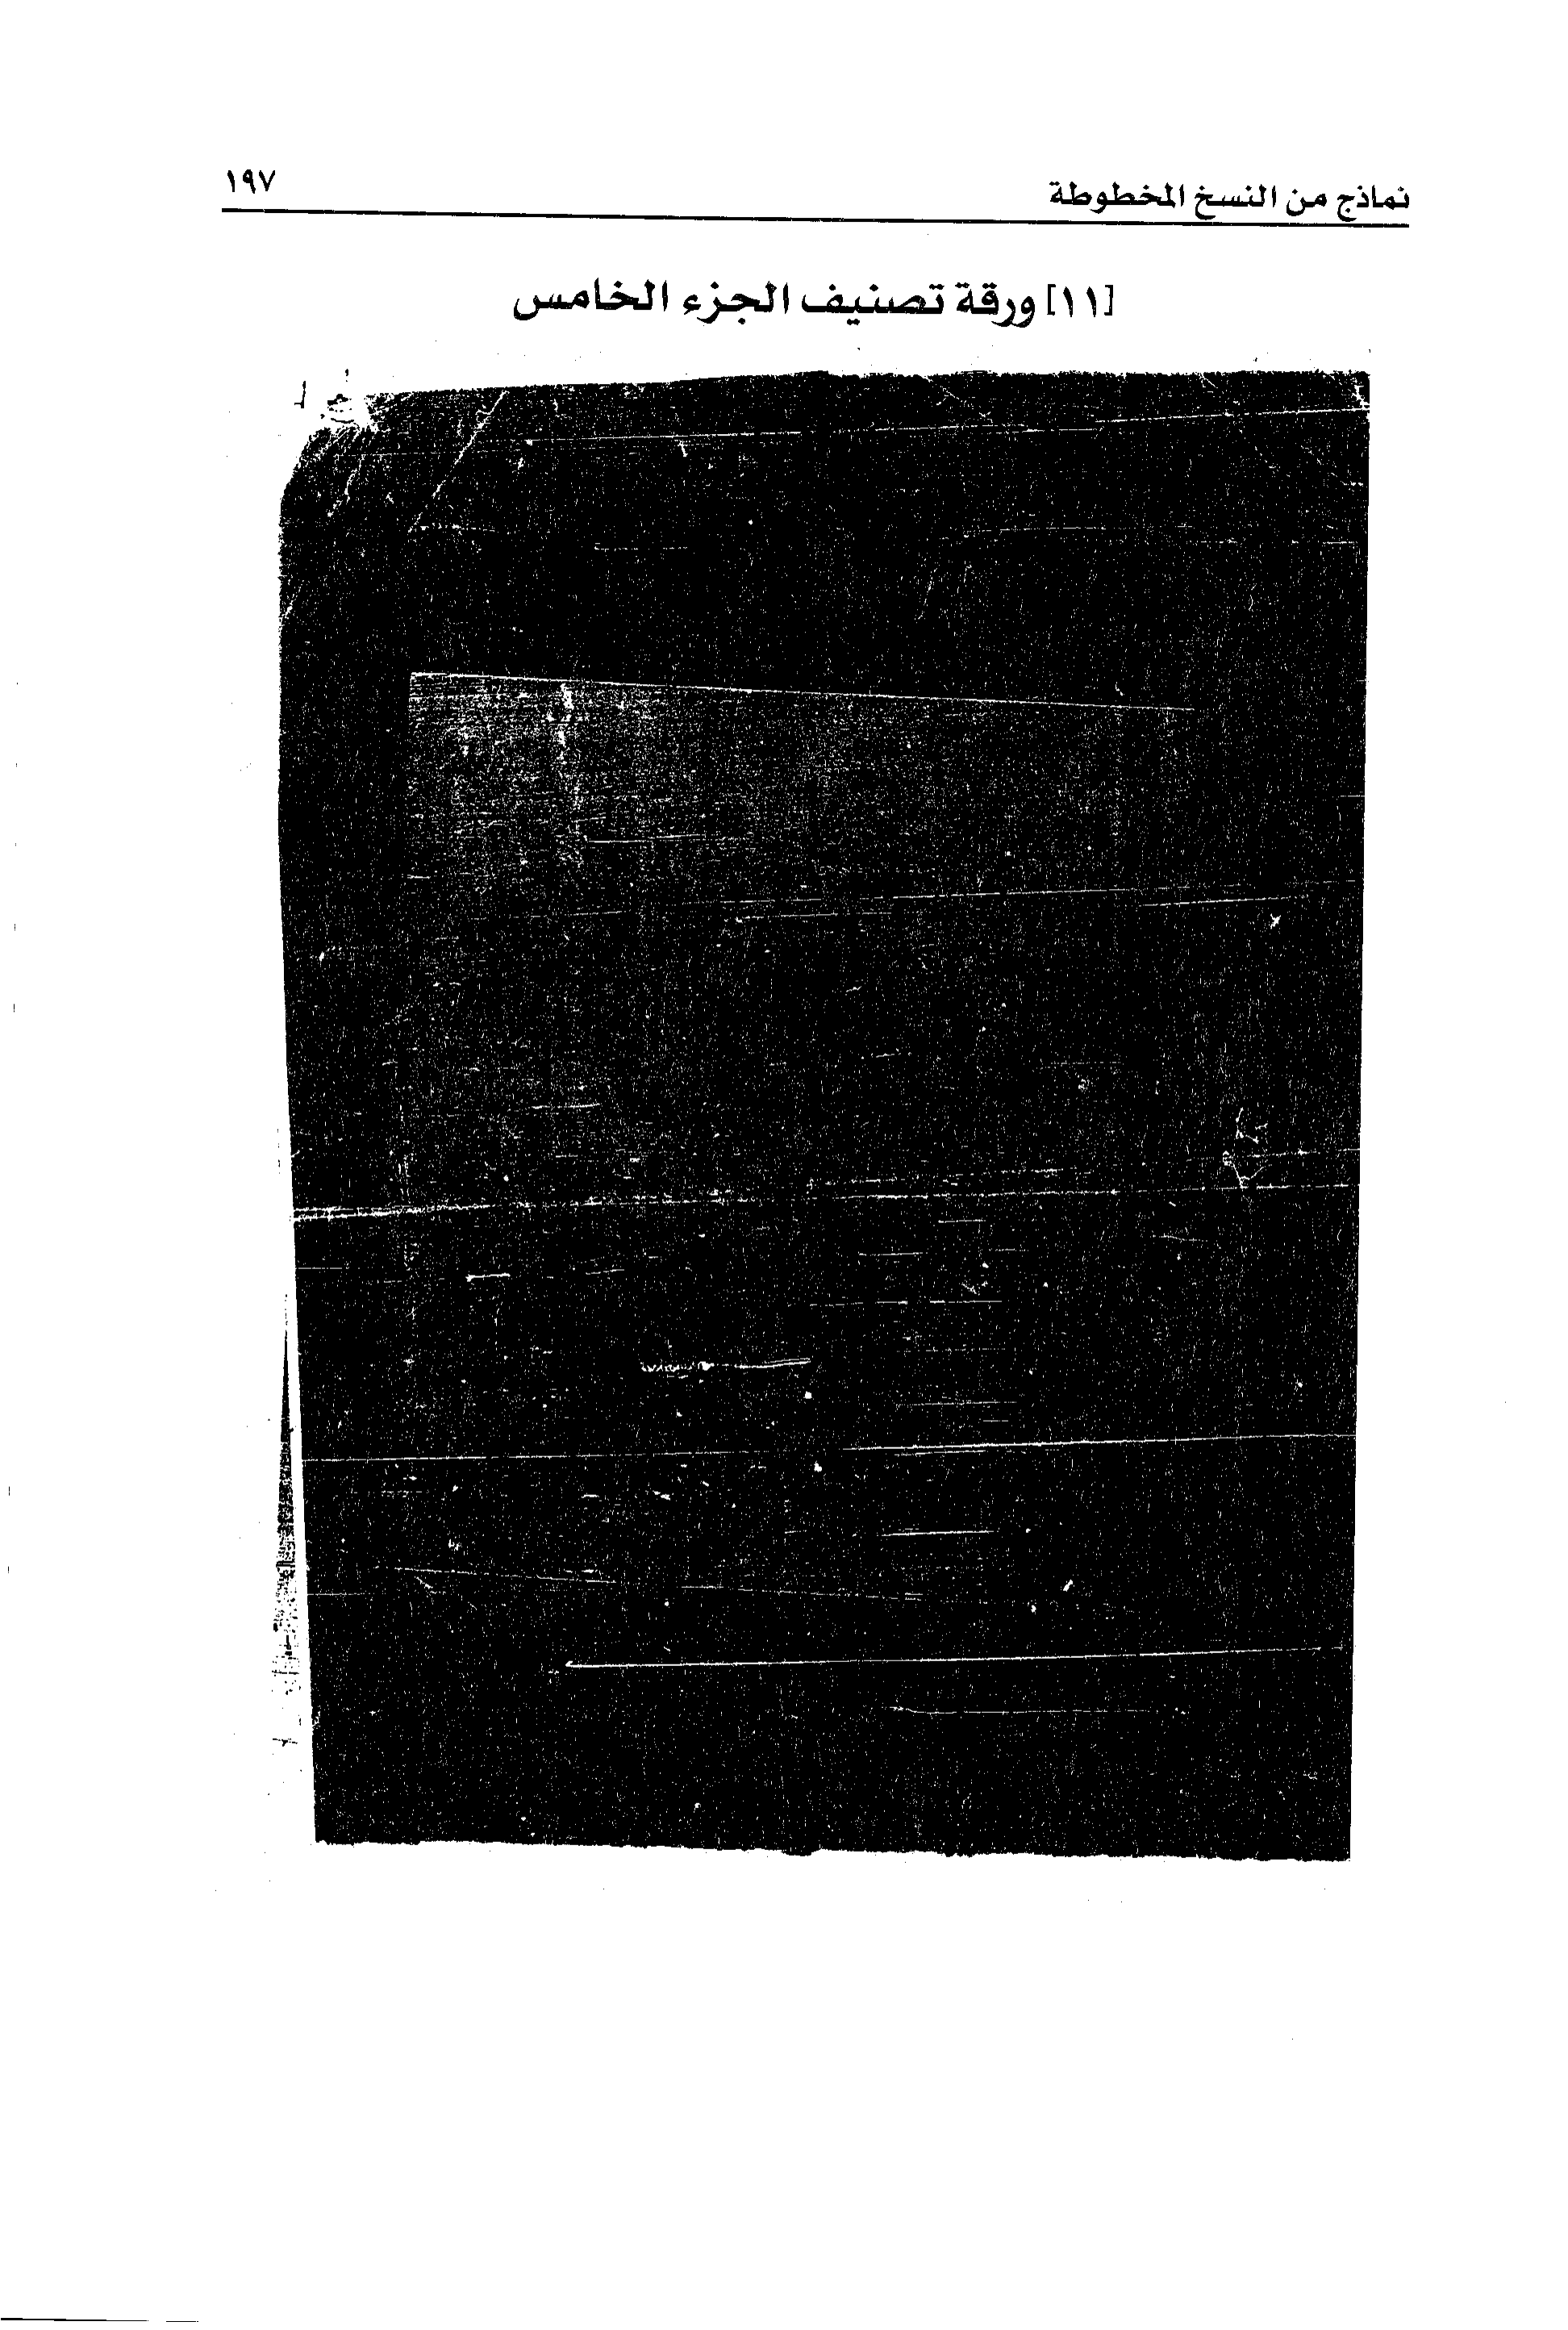 نماذج من النسخ المخطوطة ١٩٧
[١١] ورقة تصنيف الجزء الخامس